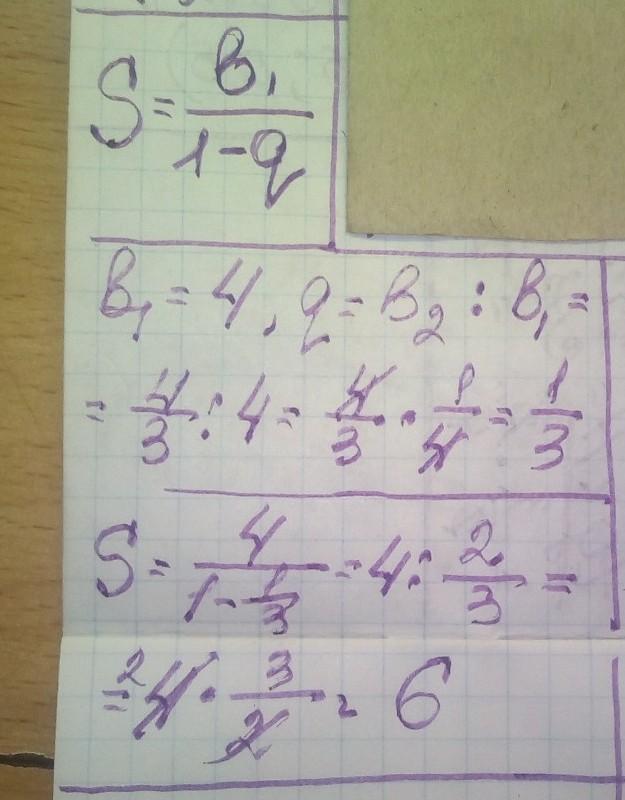 S = b₁/(1-q)
b₁ = 4, q = b₂ : b₁ =
= 4/3 : 4 = 4/3 · 1/4 = 1/3
S = 4/(1-1/3) = 4 : 2/3 =
= ²4 · 3/2 = 6